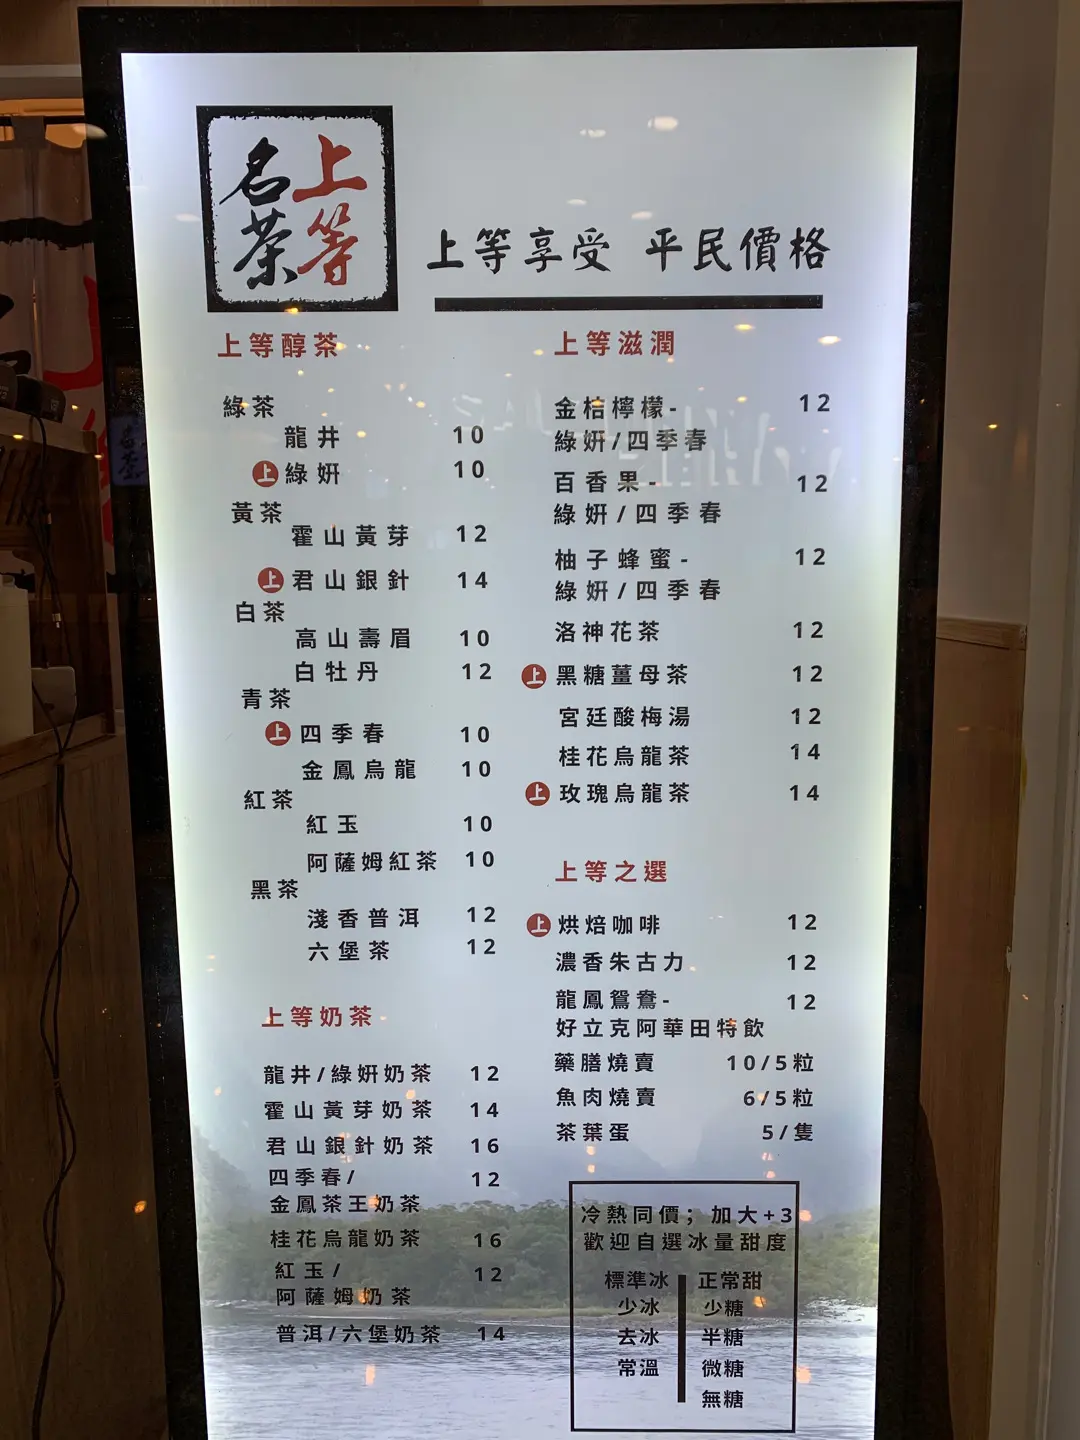 上等
名茶
上等享受 平民價格
上等醇茶
綠茶
龍井 10
上 綠妍 10
黃茶
霍山黃芽 12
上 君山銀針 14
白茶
高山壽眉 10
白牡丹 12
青茶
上 四季春 10
金鳳烏龍 10
紅茶
紅玉 10
阿薩姆紅茶 10
黑茶
淺香普洱 12
六堡茶 12
上等奶茶
龍井/綠妍奶茶 12
霍山黃芽奶茶 14
君山銀針奶茶 16
四季春/ 12
金鳳茶王奶茶
桂花烏龍奶茶 16
紅玉/ 12
阿薩姆奶茶
普洱/六堡奶茶 14
上等滋潤
金桔檸檬- 12
綠妍/四季春
百香果- 12
綠妍/四季春
柚子蜂蜜- 12
綠妍/四季春
洛神花茶 12
上 黑糖薑母茶 12
宮廷酸梅湯 12
桂花烏龍茶 14
上 玫瑰烏龍茶 14
上等之選
上 烘焙咖啡 12
濃香朱古力 12
龍鳳鴛鴦- 12
好立克阿華田特飲
藥膳燒賣 10/5粒
魚肉燒賣 6/5粒
茶葉蛋 5/隻
冷熱同價；加大+3
歡迎自選冰量甜度
標準冰 正常甜
少冰 少糖
去冰 半糖
常溫 微糖
無糖